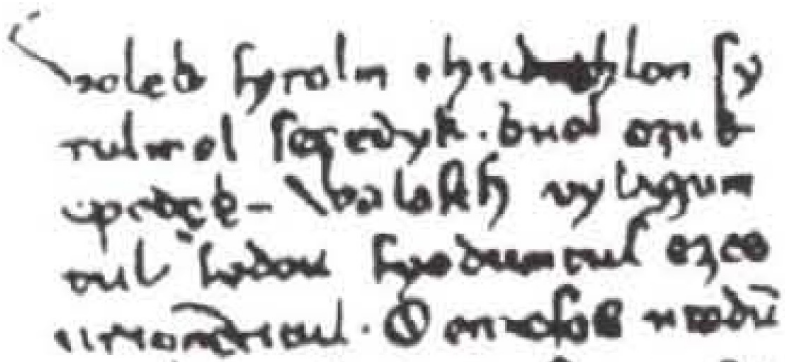 Volek syrolm thudothlon sy
rolmol sepedyk. buol ozuk
epedek. Walasth vylagum
tul sydou fyodumtul ezes
urumemtuul. O en eses urodū